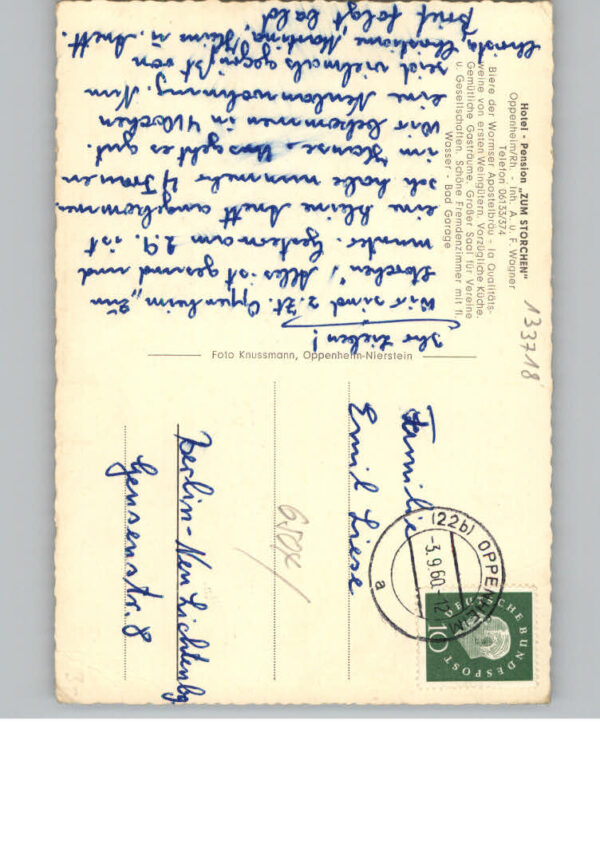 Hotel - Pension „ZUM STORCHEN"
Oppenheim/Rh. - Inh. A. u. F. Wagner
Telefon 06133/374
Biere der Wormser Apostelbräu - la Qualitäts-
weine von ersten Weingütern. Vorzügliche Küche.
Gemütliche Gasträume. Großer Saal für Vereine
u. Gesellschaften. Schöne Fremdenzimmer mit fl.
Wasser - Bad Garage
133718
Ihr Lieben!
Wir sind z. Zt. Oppenheim „Zum
Storchen", Alles ist gesund und
munter. Gestern am 2.9. ist
eine kleine Anett angekommen.
Ich habe nunmehr 4 Frauen
im Hause. Uns geht es gut.
Wir bekommen in 4 Wochen
eine Neubauwohnung. Nun
seid vielmals gegrüßt von
Christa, Christiane, Martina, Heim u. Anett.
Brief folgt bald
Foto Knussmann, Oppenheim-Nierstein
Familie
Emil Liese
650x
Berlin-Neu Lichtenbg
Gensenstr. 8
(22b) OPPENHEIM
-3.9.60.-12
a
DEUTSCHE BUNDESPOST
10